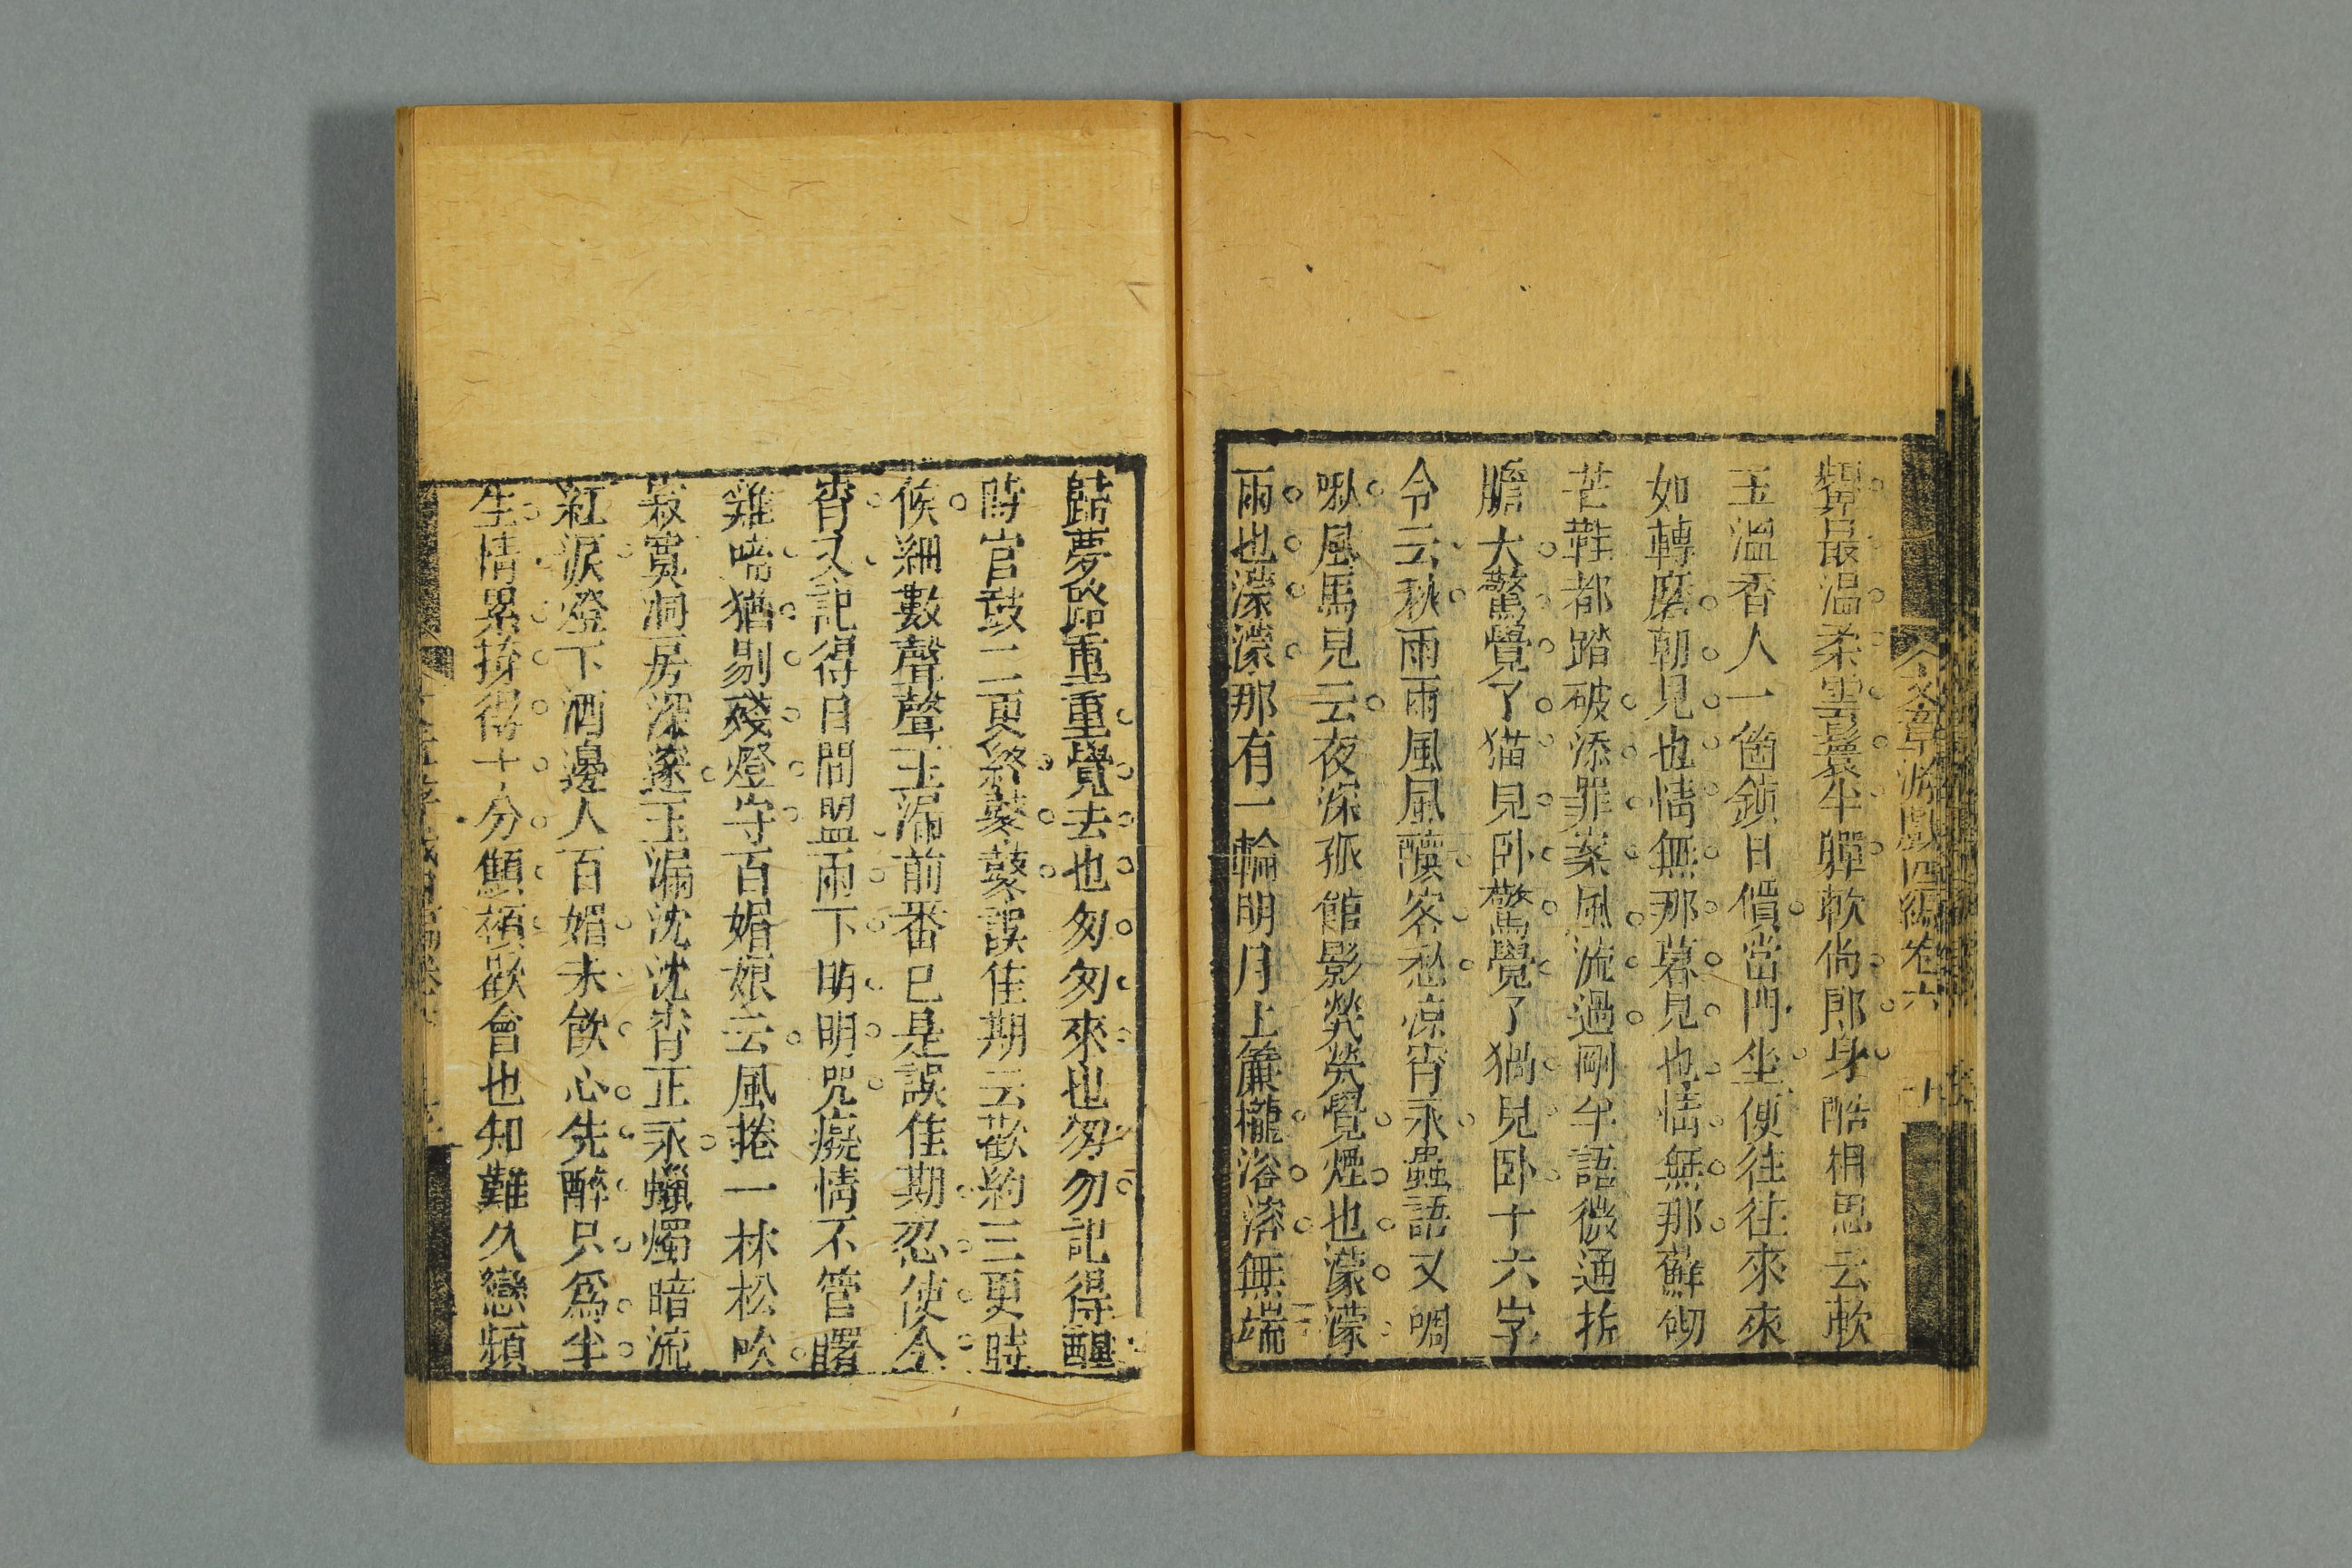 文章游戲四編卷六
顰最温柔雲鬟半嚲軟倘郎身酷相思云軟
玉溫香人一箇鎮日價當門坐便往往來來
如轉磨朝見也情無那暮見也情無那蘚砌
芒鞋都踏破添罪案風流過剛半語微通拆
膽大驚覺了猫兒卧驚覺了猧兒卧十六字
令云秋雨雨風風釀客愁凉宵永蟲語又啁
啾風馬兒云夜深孤館影煢煢覺煙也濛濛
雨也濛濛那有一輪明月上簾櫳溶溶無端
歸夢路重重覺去也匆匆來也匆匆記得醒
時官鼓二更終鼕鼕誤佳期云歡約三更時
候細數聲聲玉漏前番已是誤佳期忍使今
宵又記得日間盟雨下明明咒癡情不管曙
雞啼猶剔殘燈守百媚娘云風捲一林松吹
寂寞洞房深邃玉漏沈沈宵正永蠟燭暗流
紅淚燈下酒邊人百媚未飲心先醉只為半
生情累拚得十分顦顇歡會也知難久戀頻